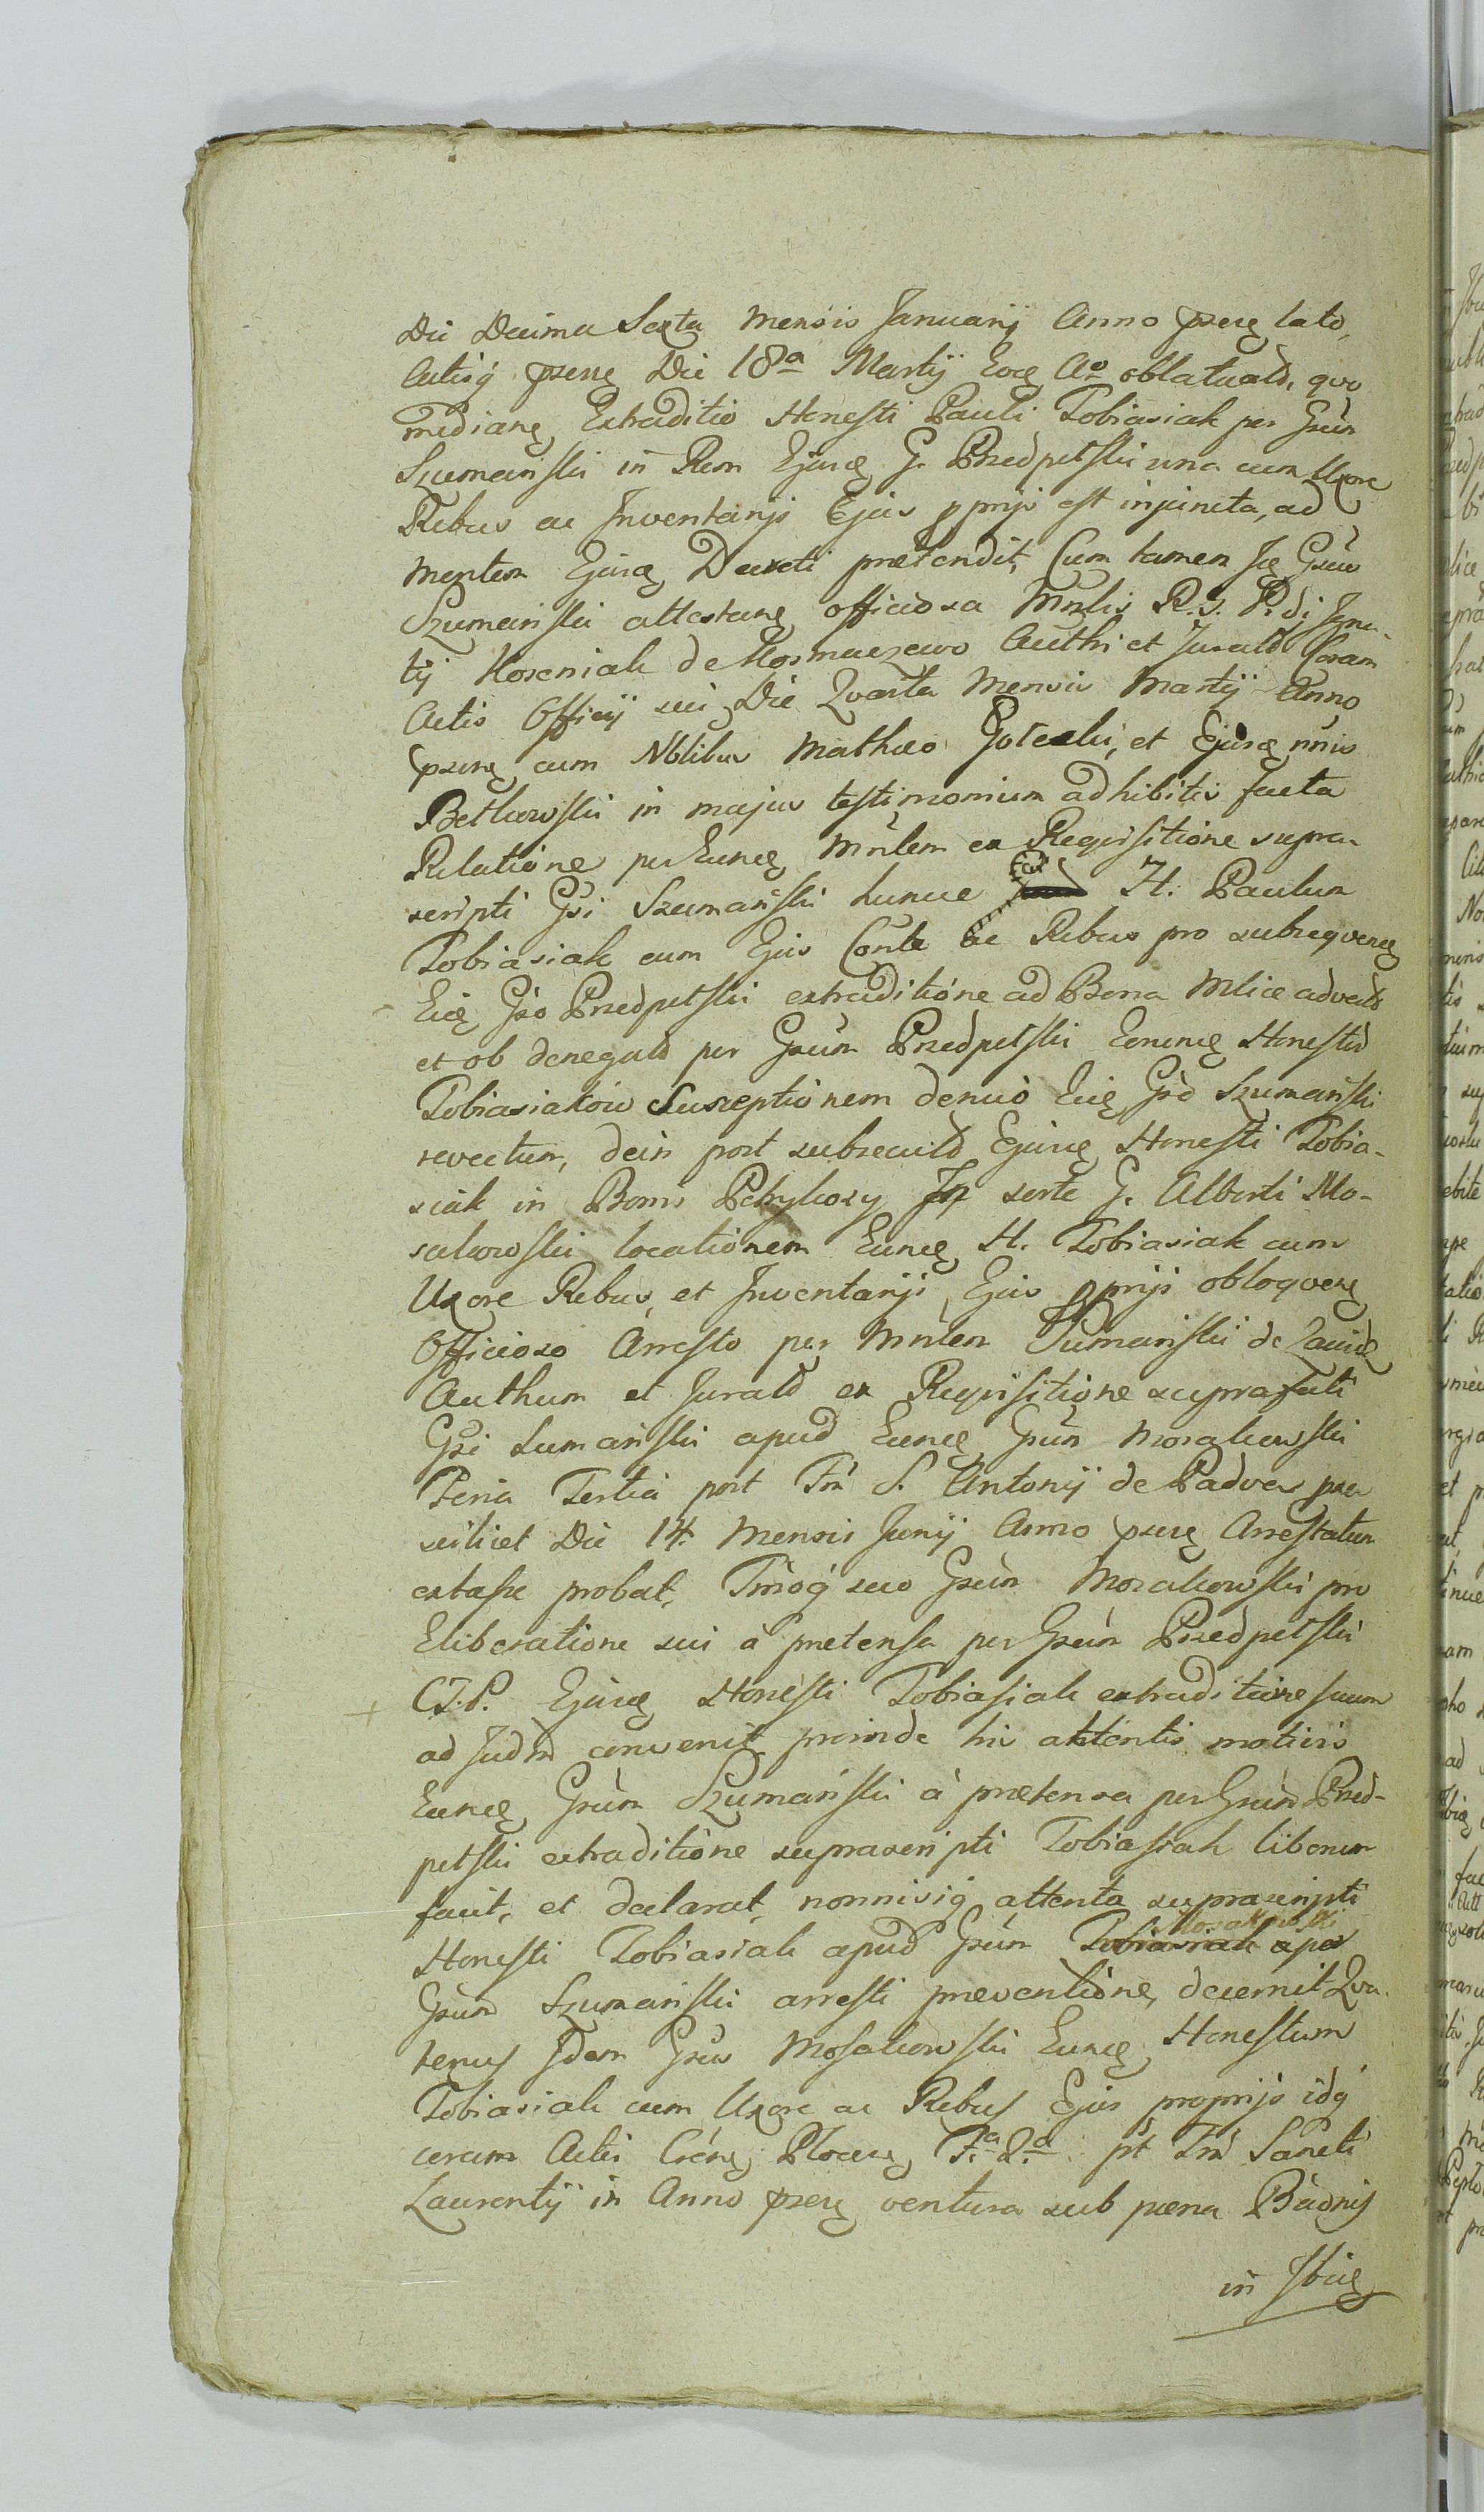 Die Decima Sexta Mensis Januarij Anno psenę lato,
Actisq́ psenę Die 18ª Martij Eoę Aº oblatuatd, quo
medianę Extraditio Honesti Pauli Tobiasiak per Gsum
Szumański in Rem Ejusę G. Przedpełski una cum Uxore
Rebus ac Inventarijs Ejus pprijs est injuncta, ad
mentem Ejusę Decreti prætendit, Cum tamen Ię Gsus
Szumański attestanę officiosa Mnlis R. J. P. di Igna-
tij Koseniak de Kosmaczewo Authi et Juratd Coram
Actis Officij sui Die Qvarta Mensis Martij Anno
psenę cum Nblibus Mathæo Gołecki, et Ejusę nnis
Betkowski in majus testimonium adhibitis facta
Relatione per Euncę Mnlem ex Reqvisitione supra
scripti Gsi Szumański hunce H. Paulum
Tobiasiak cum Ejus Conte ac Rebus pro subseqvenę
Eię Gso Przedpełski extraditione ad Bona Mlice advectd
et ob denegatd per Gsum Przedpełski Eorumę Honestd
Tobiasiakow Susceptionem denuò Eię Gso Szumański
revectum, dein post subsecutd Ejusę Honesti Tobia-
siak in Bonis Petrykozy In sorte G. Alberti Mo-
sakowski locationem Euncę H. Tobiasiak cum
Uxore Rebus, et Inventarijs Ejus pprijs obloqvenę
Officioso Arresto per Mnlem Szumański de
Authum et Juratd ex Reqvisitione suprafati
Gsi Sumański apud Euncę Gsum Mosakowski
Feria Tertia post Fm S. Antonij de Padva
scilicet Die 14. Mensis Junij Anno psenę Arrestatum
extasse probat, Tmoq́ suo Gsum Mosakowski pro
Eliberatione sui à pretensa per Gsum Przedpełski
C.T.P. Ejusę Honesti Tobiasiak extraditione suum
ad Judm convenit proinde his attentis motivis
Euncę Gsum Szumański à prætensa per Gsum Przed-
pełski extraditione suprascripti Tobiasiak liberum
facit, et declarat, nonnisiq́ attenta suprascripti
Honesti Tobiasiak apud Gsum Tobiasiak apd Mosakowski
Gsum Szumański arresti præventione, decernit Qva-
tenus Idem Gsus Mosakowski Euncę Honestum
Tobiasiak cum Uxore ac Rebus Ejus proprijs idq́
coram Actis Crenę Plocenę Fª 2ª pt Fm Sancti
Laurentij in Anno psenę ventura sub pæna Bàdnis
in Ibię